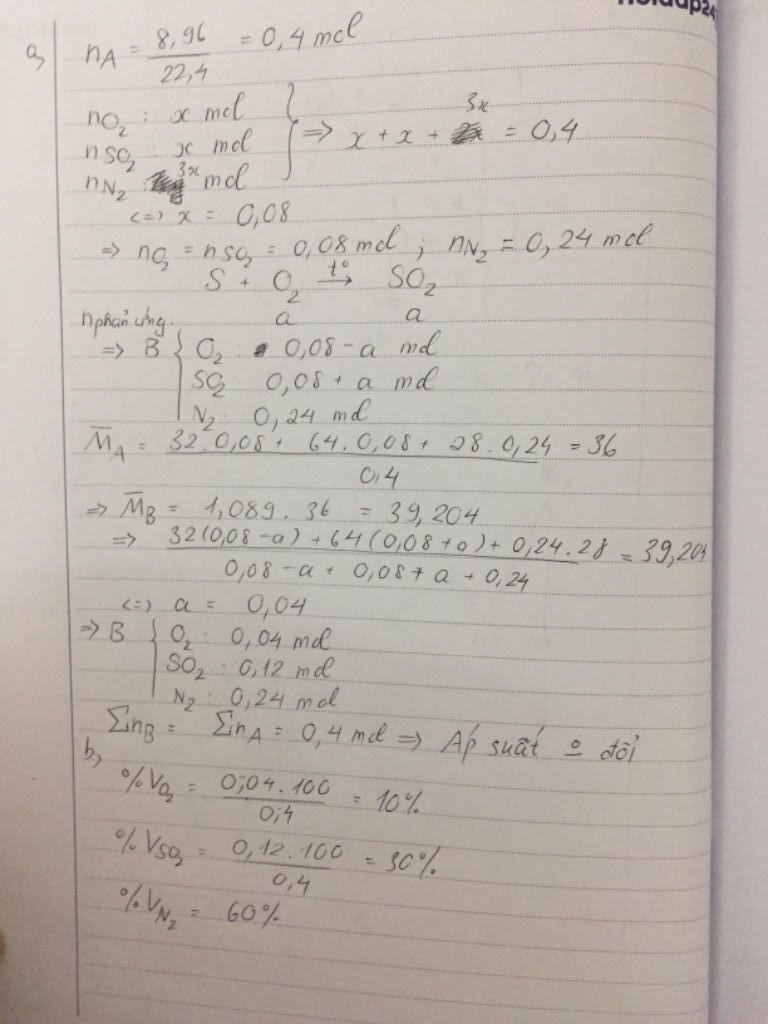 a, nA = 8,96 / 22,4 = 0,4 mol
nO2 : x mol
nSO2 : x mol ⇒ x + x + 3x = 0,4
nN2 : 3x mol
<=> x = 0,08
⇒ nO2 = nSO2 = 0,08 mol ; nN2 = 0,24 mol
S + O2 →t° SO2
nphản ứng. a a
⇒ B { O2 : 0,08 - a mol
SO2 : 0,08 + a mol
N2 : 0,24 mol
M̅A = (32.0,08 + 64.0,08 + 28.0,24) / 0,4 = 36
⇒ M̅B = 1,089.36 = 39,204
⇒ (32(0,08 - a) + 64(0,08 + a) + 0,24.28) / (0,08 - a + 0,08 + a + 0,24) = 39,204
<=> a = 0,04
⇒ B { O2 : 0,04 mol
SO2 : 0,12 mol
N2 : 0,24 mol
ΣnB = ΣnA = 0,4 mol ⇒ Áp suất o đổi
b,
%VO2 = 0,04.100 / 0,4 = 10%
%VSO2 = 0,12.100 / 0,4 = 30%.
%VN2 = 60%